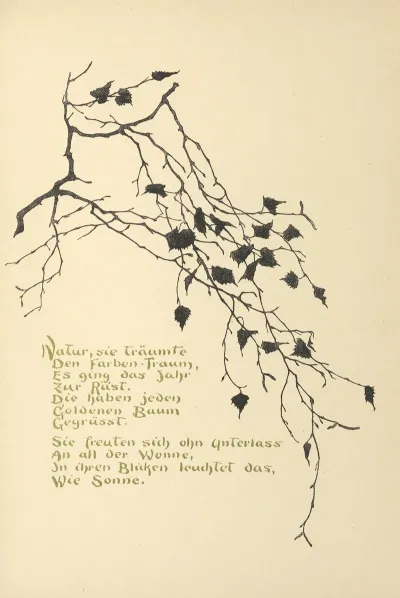 Natur, sie träumte
Den Farben-Traum,
Es ging das Jahr
Zur Rüst.
Die haben jeden
Goldenen Baum
Gegrüsst.
Sie freuten sich ohn Unterlass
An all der Wonne,
In ihren Bliken leuchtet das,
Wie Sonne.